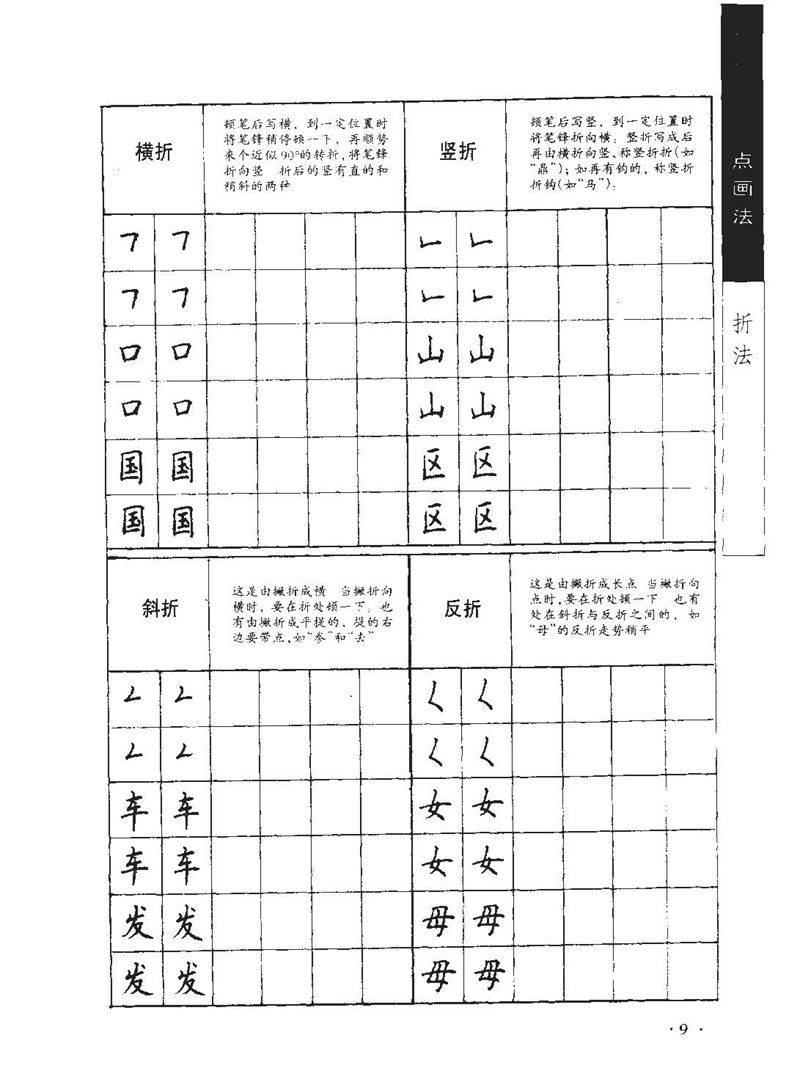 点画法
折法
横折
顿笔后写横、到一定位置时
将笔锋稍停顿一下、再顺势
来个近似90°的转折,将笔锋
折向竖 折后的竖有直的和
稍斜的两种
㇕ ㇕
㇕ ㇕
口 口
口 口
国 国
国 国
竖折
顿笔后写竖、到一定位置时
将笔锋折向横; 竖折写成后
再由横折向竖、称竖折折(如
“鼎”); 如再有钩的, 称竖折
折钩(如“马”);
㇗ ㇗
㇗ ㇗
山 山
山 山
区 区
区 区
斜折
这是由撇折成横 当撇折向
横时, 要在折处顿一下; 也
有由撇折成平提的, 提的右
边要带点,如“参”和“去”
㇜ ㇜
㇜ ㇜
车 车
车 车
发 发
发 发
反折
这是由撇折成长点 当撇折向
点时,要在折处顿一下 也有
处在斜折与反折之间的、如
“母”的反折走势稍平
㇛ ㇛
㇛ ㇛
女 女
女 女
母 母
母 母
·9·